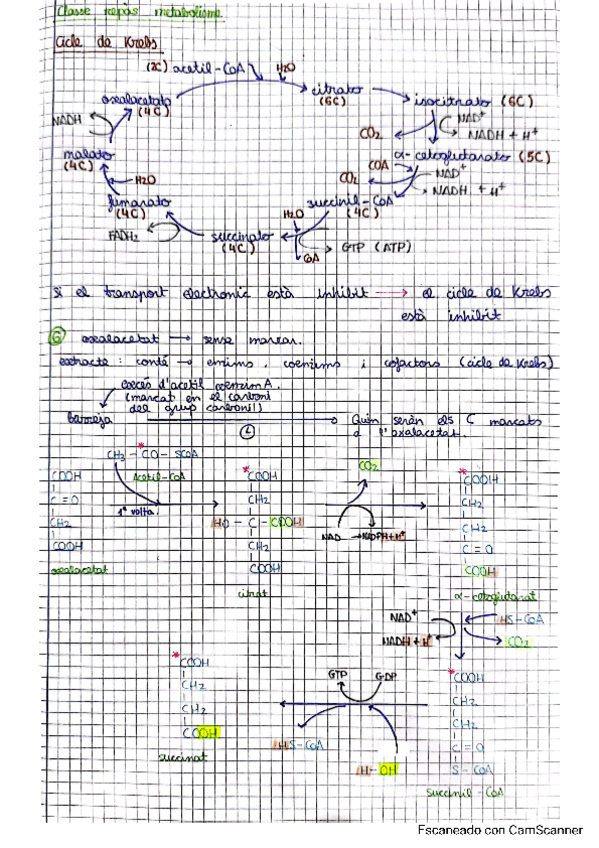 Classe repàs metabolisme
Cicle de Krebs
(2C) acetil-CoA
H2O
citrato
(6C)
isocitrato (6C)
oxalacetato
(4C)
NADH
NAD+
NADH + H+
CO2
malato
(4C)
α-cetoglutarato (5C)
COA
NAD+
CO2
NADH + H+
H2O
fumarato
(4C)
succinil-CoA
(4C)
H2O
FADH2
succinato
(4C)
GTP (ATP)
CoA
si el transport electronic està inhibit → el cicle de Krebs
està inhibit
6 oxalacetat → sense marcar.
extracte: conté → enzims, coenzims i cofactors (cicle de Krebs)
excés d'acetil coenzim A.
(marcat en el carboni
del grup carbonil)
barreja
Quin seràn els C marcats
a l'oxalacetat.
CH3 - *CO - SCOA
Acetil-CoA
COOH
C = O
CH2
COOH
oxalacetat
1ª volta.
*COOH
CH2
HO - C - COOH
CH2
COOH
citrat
CO2
NAD → NADPH+H+
*COOH
CH2
CH2
C = O
COOH
α-cetoglutarat
NAD+
HS-CoA
NADH + H+
CO2
*COOH
CH2
CH2
COOH
succinat
GTP
GDP
HS-CoA
H-OH
*COOH
CH2
CH2
C = O
S - CoA
succinil-CoA
Escaneado con CamScanner